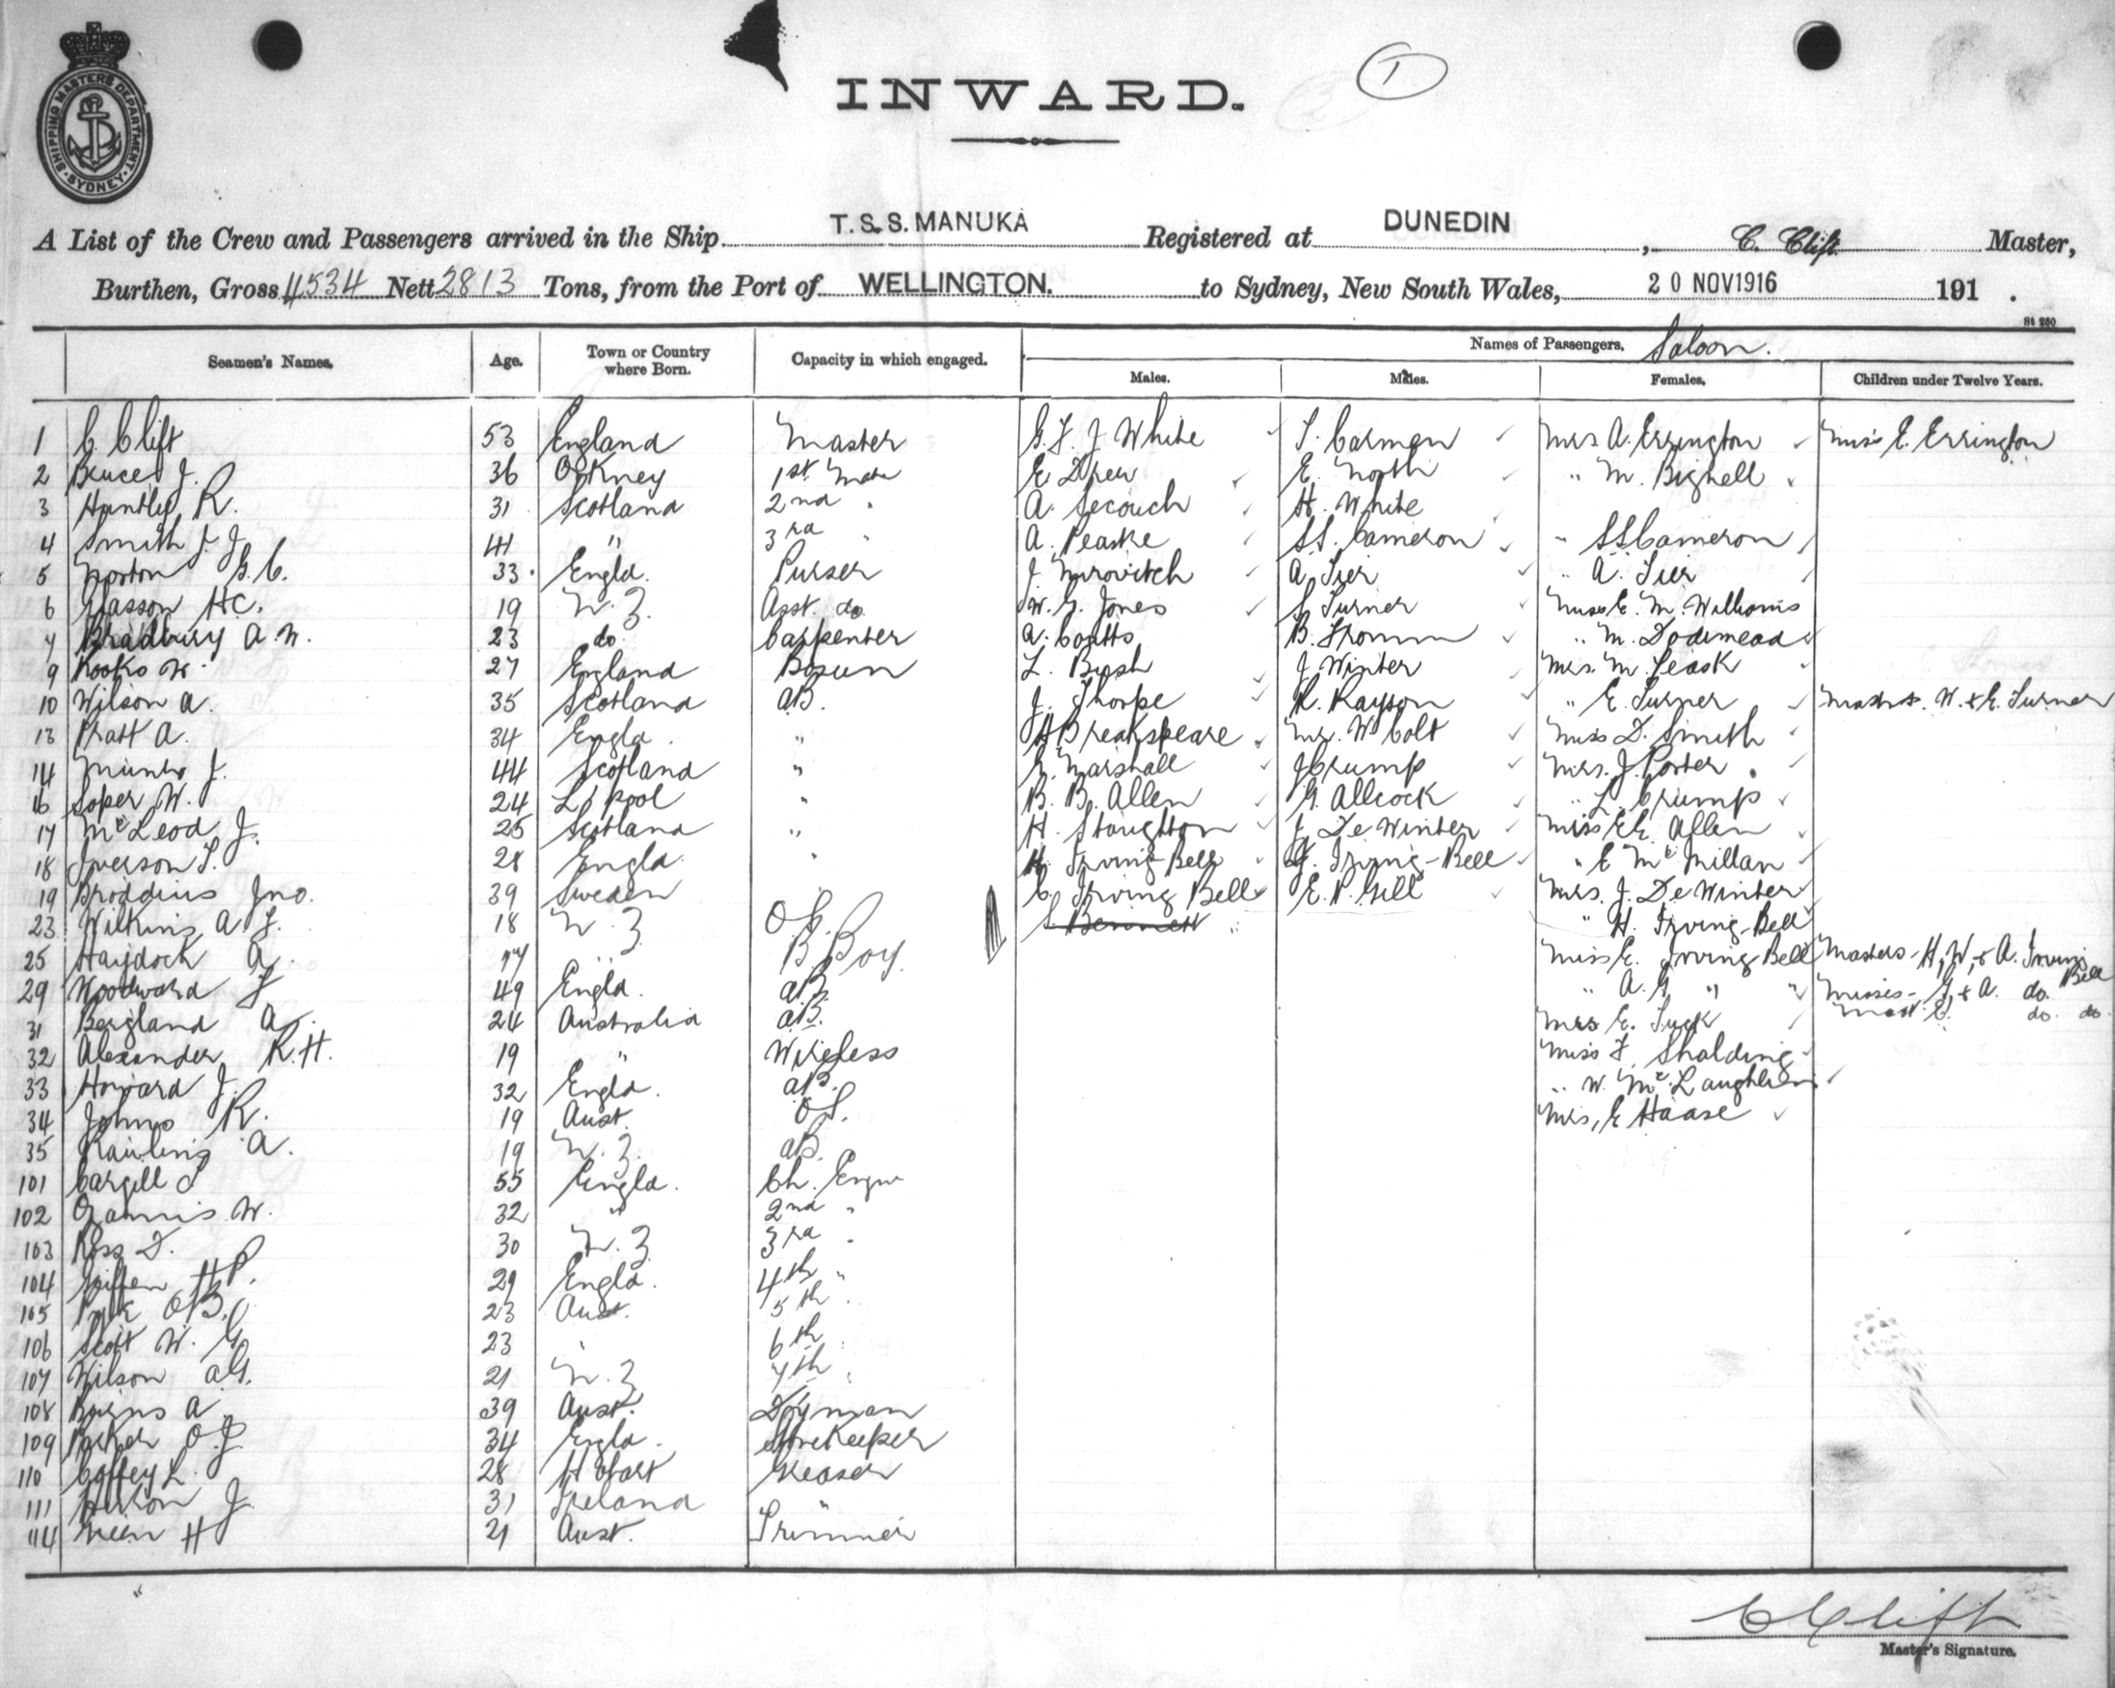 SHIPPING MASTERS DEPARTMENT. SYDNEY
1
INWARD.
A List of the Crew and Passengers arrived in the Ship T.S.S. MANUKA Registered at DUNEDIN, C. Clift Master,
Burthen, Gross 4534 Nett 2813 Tons, from the Port of WELLINGTON. to Sydney, New South Wales, 20 NOV 1916 191 .
St 250
Names of Passengers. Saloon.
Seamen's Names. Age. Town or Country where Born. Capacity in which engaged. Males. Males. Females. Children under Twelve Years.
1 C. Clift 53 England Master G. F. J White T. Carmen Mrs. A. Errington Miss E. Errington
2 Bruce J. 36 Orkney 1st Mate E Drew E. North " M. Bignell
3 Huntly R. 31 Scotland 2nd " A. Secouch H. White
4 Smith J. J. 41 " 3rd " A. Peaske S.S. Cameron " S S Cameron
5 Norton G. C. 33 Engld. Purser J. A. Tier " A. Tier
6 Glasson H C. 19 N. Z. Asst. do. W. G. Jones S Turner Miss E. M. Williams
7 Bradbury A. W. 23 do. Carpenter A. Coutts B. " M. Dodimead
9 Rooks W. 27 England Bosun L. Bush J Winter Mrs. M. Leask
10 Wilson A. 35 Scotland AB. J. Thorpe R. Rayson " E. Turner Masters. W. & E. Turner
13 Pratt A. 34 Engld. " H Breakspeare Mr. W Colt Miss D. Smith
14 Munro J. 44 Scotland " Marshall J Crump Mrs. J. Porter
16 Soper W. 24 L'pool " B. B. Allen G. Allcock " L. Crump
17 McLeod J. 25 Scotland " H. Stoughton J De Winter Miss E E. Allen
18 Iverson T. 28 Engld. " H. Irving-Bell G. Irving-Bell " E McMillan
19 Broddius Jno. 39 Sweden C Irving Bell E. P. Gill Mrs. J. De Winter
23 Wilkins A. F. 18 N. Z O. S. S. Bennett " H. Irving-Bell
25 Haydock A. 17 " B Boy. Miss E. Irving Bell Masters - H, W, & A. Irving Bell
29 Woodward F 49 Engld. AB. " A. G " " Misses - G, & A. do.
31 Bergland A. 24 Australia AB. Mrs E. Tuck Mast. S. do. do.
32 Alexander R. H. 19 " Wireless Miss F. Shalding
33 Howard J. 32 Engld. AB. " W. McLaughlin
34 Johns R. 19 Aust. OS. Mrs, E Haase
35 Rawling A. 19 N. Z. AB.
101 Cargill J 55 Engld. Ch. Engnr
102 W. 32 " 2nd "
103 Ross D. 30 N. Z. 3rd "
104 Griffen H P. 29 Engld. 4th "
105 O B. 23 Aust. 5th "
106 Scott W. G. 23 " 6th "
107 Wilson A G. 21 N. Z 7th "
108 Burns A 39 Aust. D'yman
109 Parker O. J. 34 Engld. Storekeeper
110 Coffey L. 28 Hobart Greaser
111 J. 31 Ireland "
114 Green H 21 Aust. Trimmer
C Clift
Master's Signature.